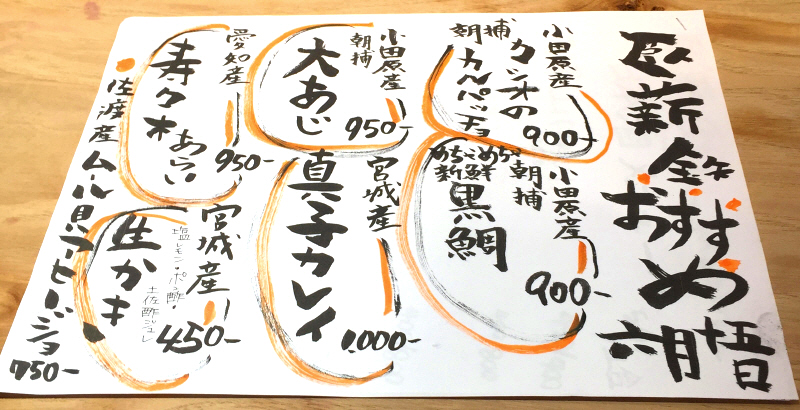 おすすめ
六月十五日
小田原産
朝捕
クシオの
カルパッチョ
900-
小田原産
朝捕
めちゃめちゃ
新鮮
黒鯛
900-
小田原産
朝捕
大あじ
950-
宮城産
真子カレイ
1,000-
愛知産
寿々木
あらい
950-
宮城産
生かき
塩レモン・ポン酢・
土佐酢ジュレ
450-
佐渡産ムール貝
750-